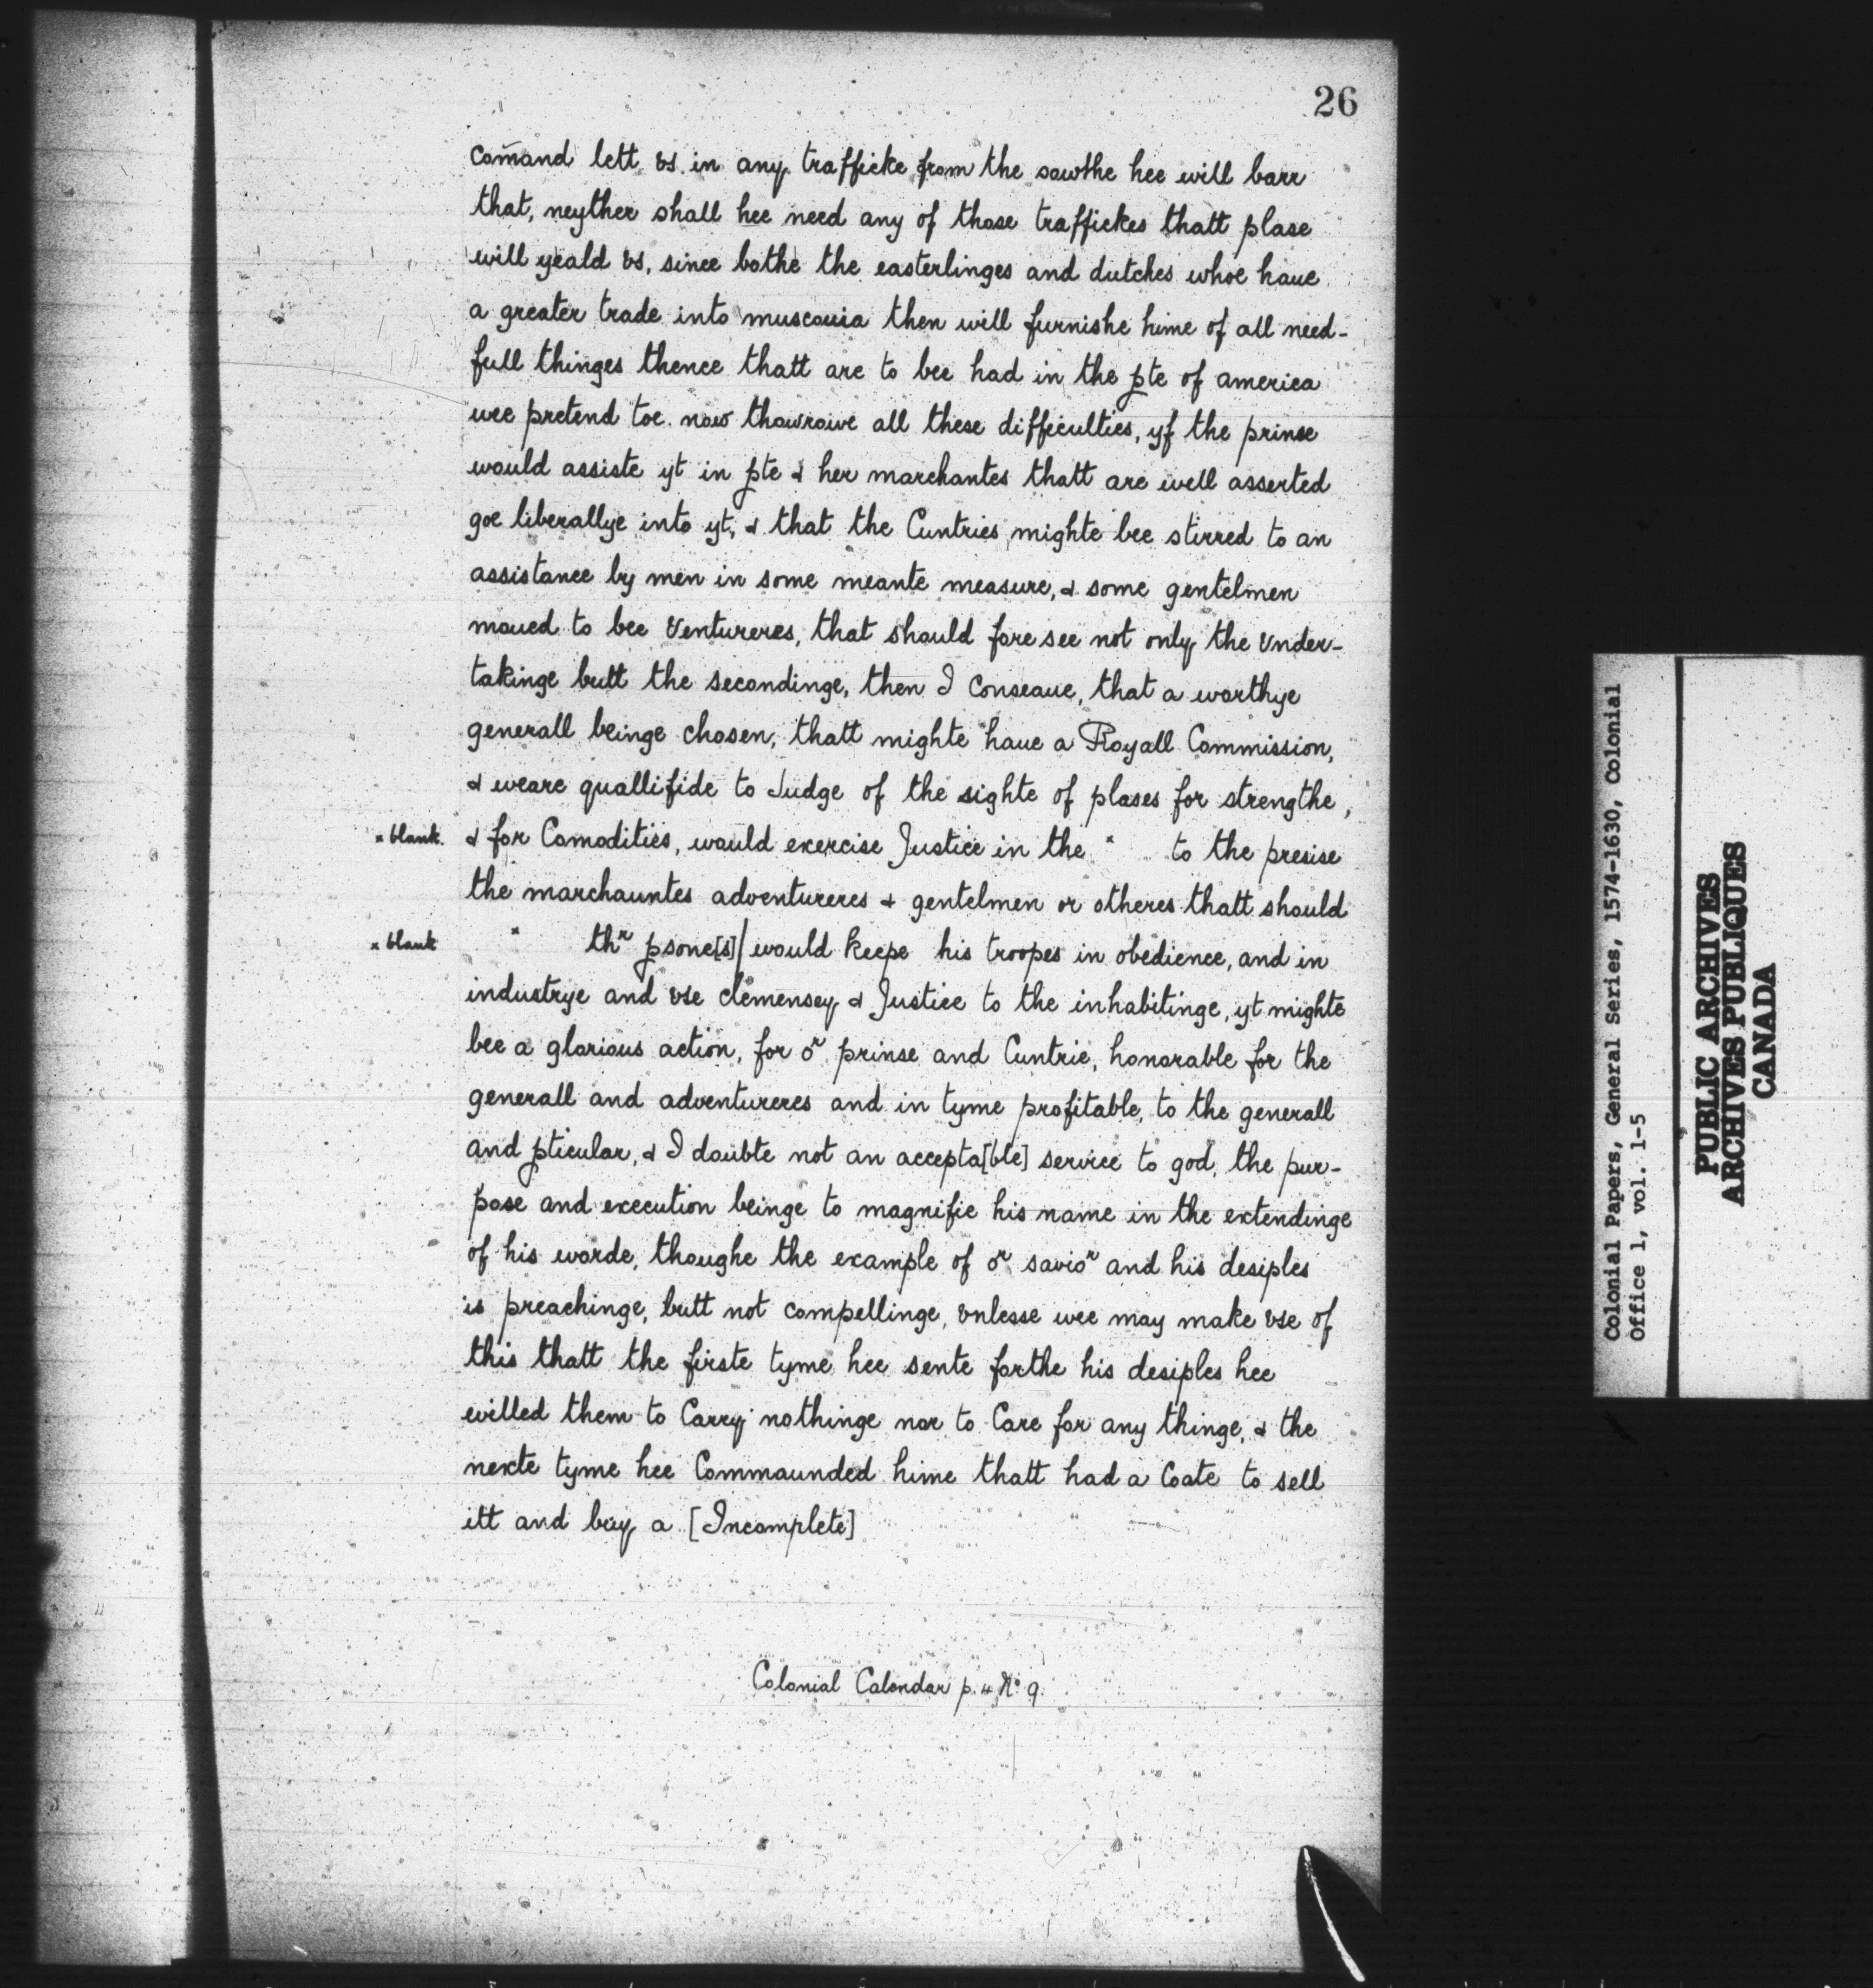 26
comand lett vs in any trafficke from the sowthe hee will barr
that, neyther shall hee need any of those traffickes thatt plase
will yeald vs, since bothe the easterlinges and dutches whoe haue
a greater trade into muscouia then will furnishe hime of all need-
full thinges thence thatt are to bee had in the pte of america
wee pretend toe. now thowrowe all these difficulties, yf the prinse
would assiste yt in pte & her marchantes thatt are well asserted
goe liberallye into yt, & that the Cuntries mighte bee stirred to an
assistance by men in some meante measure, & some gentelmen
moued to bee Ventureres, that should fore see not only the Vnder-
takinge butt the secondinge, then I conseaue, that a worthye
generall beinge chosen, thatt mighte haue a Royall Commission,
& weare quallifide to Judge of the sighte of plases for strengthe,
× blank. & for Comodities, would exercise Justice in the × to the presise
the marchauntes adventureres & gentelmen or otheres thatt should
× blank × thr psone[s]/ would keepe his troopes in obedience, and in
industrye and vse clemensey & Justice to the inhabitinge, yt mighte
bee a glorious action, for or prinse and Cuntrie, honorable for the
generall and adventureres and in tyme profitable, to the generall
and pticular, & I doubte not an accepta[ble] service to god, the pur-
pose and execution beinge to magnifie his name in the extendinge
of his worde, thoughe the example of or savior and his desiples
is preachinge, butt not compellinge, vnlesse wee may make vse of
this thatt the firste tyme hee sente forthe his desiples hee
willed them to Carry nothinge nor to Care for any thinge, & the
nexte tyme hee Commaunded hime thatt had a Coate to sell
itt and buy a [Incomplete]
Colonial Calendar p. 4 No 9.
Colonial Papers, General Series, 1574-1630, Colonial
Office 1, vol. 1-5
PUBLIC ARCHIVES
ARCHIVES PUBLIQUES
CANADA